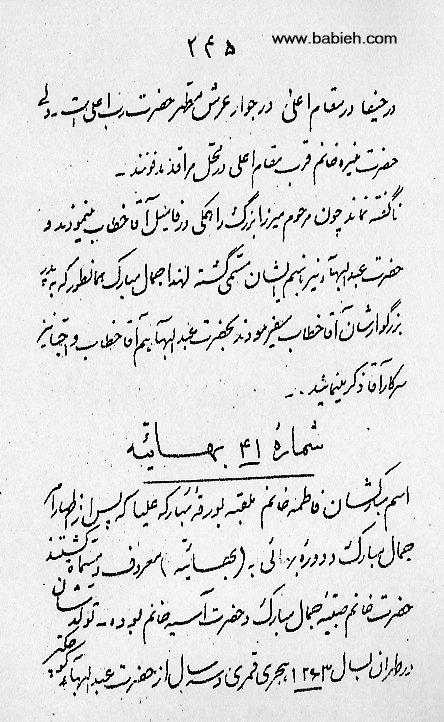 www.babieh.com
۲۴۵
در حیفا در مقام اعلیٰ در جوار عرش مطهر حضرت رب اعلی است - ولی
حضرت منیره خانم قرب مقام اعلی در محل مراقد مدفونند -
ناگفته نماند چون مرحوم میرزا بزرگ را همگی در فامیل آقا خطاب مینمودند و
حضرت عبدالبهآء نیز باسم ایشان مسمی گشته لهذا جمال مبارک همانطور که به پدر
بزرگوارشان آقا خطاب میفرمودند بحضرت عبدالبهآ هم آقا خطاب و احبّا نیز
سرکار آقا ذکر مینمایند . -
شمارهٔ ۴۱ بهائیّه
اسم مبارکشان فاطمه خانم ملقبه بورقهٔ مبارکه علیا که پس از اظهار امر
جمال مبارک و دورهٔ بهائی به (بهائیّه) معروف و مسماة گشتند
حضرت خانم صبیّهٔ جمال مبارک و حضرت آسیه خانم بوده - تولدشان
در طهران بسال ۱۲۶۳ هجری قمری و سه سال از حضرت عبدالبهآء کوچکتر